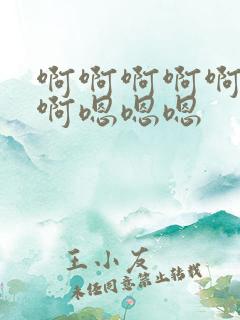 啊啊啊啊啊
啊嗯嗯嗯
王小友
未经同意禁止转载